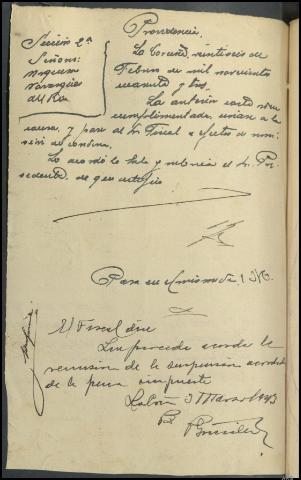 Providencia.
Sección 2ª
Señores:
La Coruña, veintiseis de
Febrero de mil novecientos
cuarenta y tres.
La anterior carta orden
cumplimentada, unase a la
causa, y pase al Sr. Fiscal a efectos de
remisión de condena.
Lo acordó la Sala y rubrica el Sr. Pre-
sidente de que certifico
Pasa en el mismo día
El Fiscal dice
Que procede acordar la
remision de la suspensión acordada
de la pena impuesta
Coruña 3 Marzo 1943